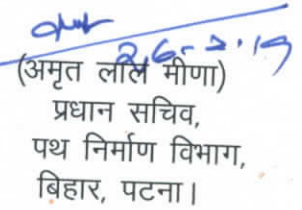 26-7-19
(अमृत लाल मीणा)
प्रधान सचिव,
पथ निर्माण विभाग,
बिहार, पटना।